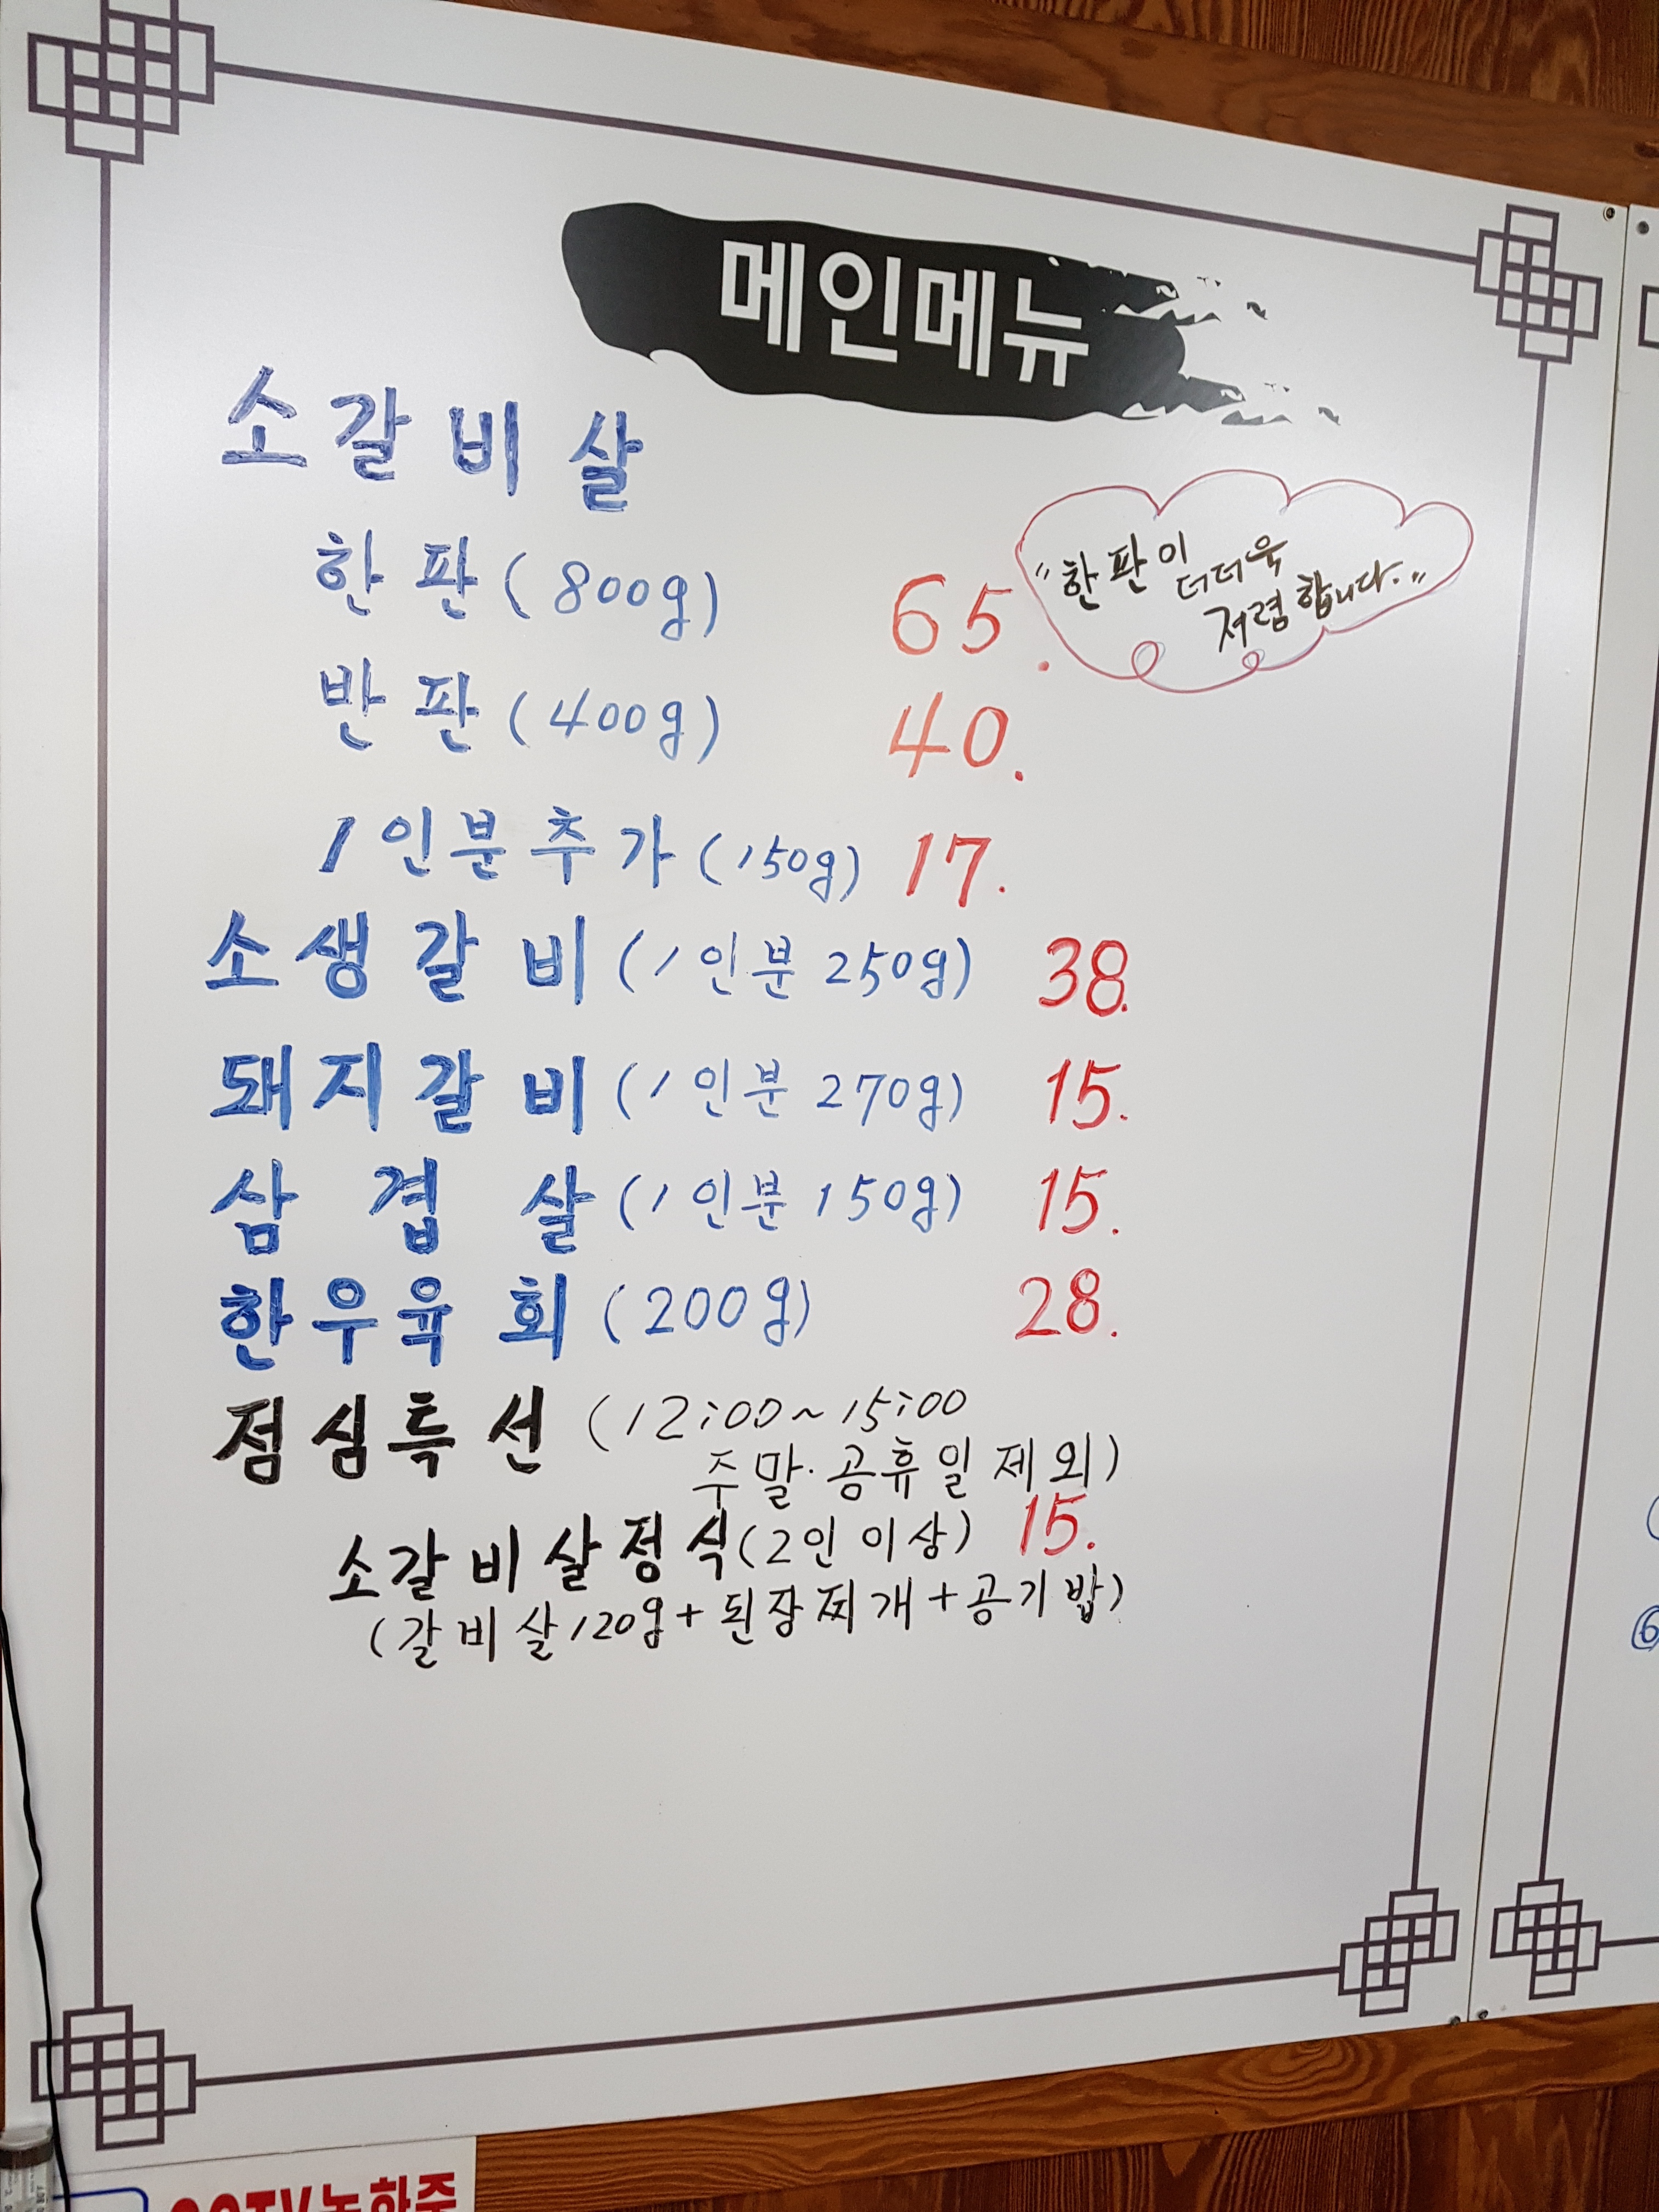 메인메뉴
소갈비살
한판(800g) 65.
"한판이
더더욱
저렴합니다."
반판(400g) 40.
1인분추가(150g) 17.
소생갈비(1인분 250g) 38.
돼지갈비(1인분 270g) 15.
삼겹살(1인분 150g) 15.
한우육회(200g) 28.
점심특선 (12:00~15:00
주말·공휴일제외)
소갈비살정식(2인이상) 15.
(갈비살120g+된장찌개+공기밥)
6